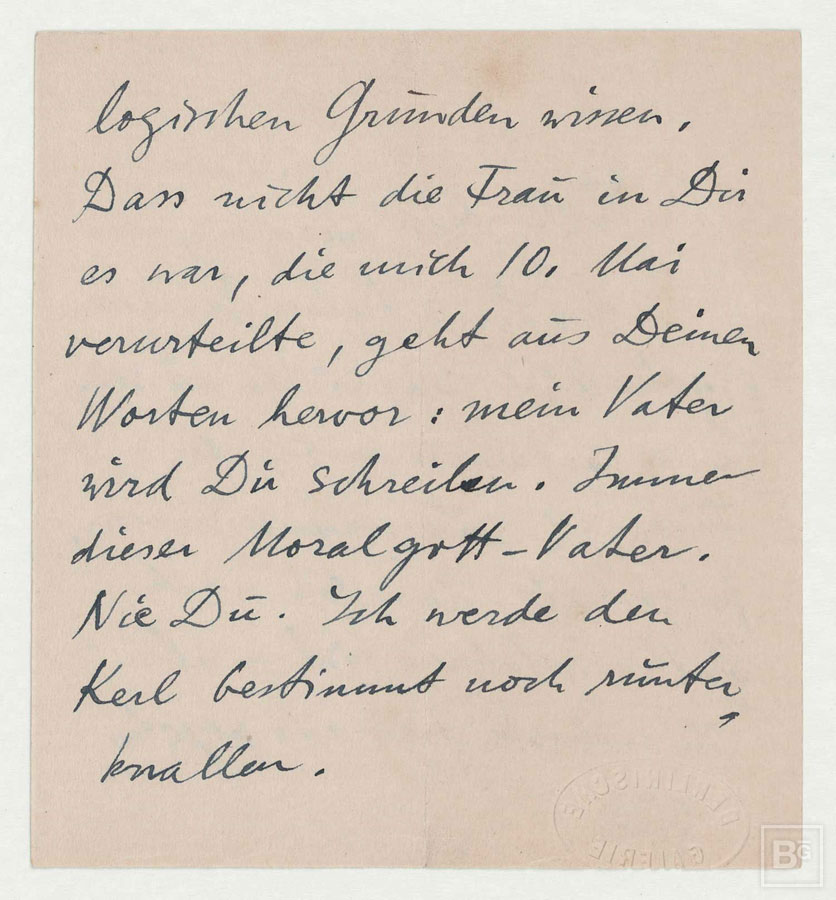 logischen Gründen wissen.
Dass nicht die Frau in Dir
es war, die mich 10. Mai
verurteilte, geht aus Deinen
Worten hervor: mein Vater
wird Dir schreiben. Immer
dieser Moralgott-Vater.
Nie Du. Ich werde den
Kerl bestimmt noch runter
knallen.
BERLINISCHE
GALERIE
BG